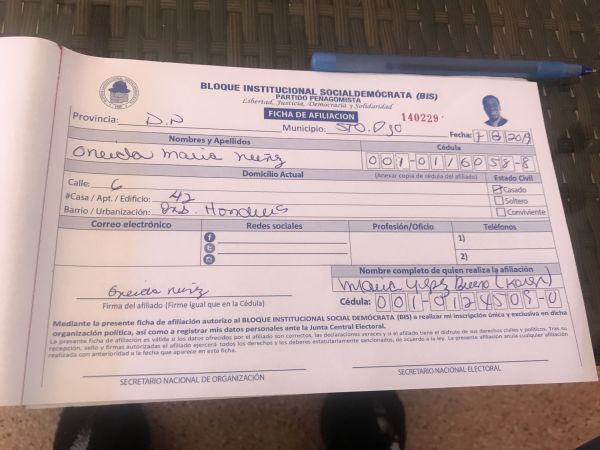 BLOQUE INSTITUCIONAL SOCIALDEMÓCRATA (BIS)
PARTIDO PEÑAGOMISTA
Libertad, Justicia, Democracia y Solidaridad
FICHA DE AFILIACION 140229
Provincia: D.N Municipio: STO. Dgo Fecha: 7 8 2019
Nombres y Apellidos Cédula
Oneida Maria Nuñz 001-0116058-8
Domicilio Actual (Anexar copia de cédula del afiliado) Estado Civil
Calle: 6 Casado
#Casa / Apt. / Edificio: 42 Soltero
Barrio / Urbanización: Honduras Conviviente
Correo electrónico Redes sociales Profesión/Oficio Teléfonos
1)
2)
Nombre completo de quien realiza la afiliación
Oneida nuñz Maria Bueno
Firma del afiliado (Firme igual que en la Cédula) Cédula: 001-0124508-0
Mediante la presente ficha de afiliación autorizo al BLOQUE INSTITUCIONAL SOCIAL DEMÓCRATA (BIS) a realizar mi inscripción única y exclusiva en dicha
organización política, así como a registrar mis datos personales ante la Junta Central Electoral.
La presente ficha de afiliación es válida si los datos ofrecidos por el afiliado son correctos, las declaraciones veraces y si el afiliado tiene el disfrute de sus derechos civiles y políticos. Tras su
recepción, sello y firmas autorizadas el afiliado ejercerá todos los derechos y los deberes estatutariamente consignados, de acuerdo a la ley. La presente afiliación anula cualquier afiliación
realizada con anterioridad a la fecha que aparece en esta ficha.
SECRETARIO NACIONAL DE ORGANIZACIÓN SECRETARIO NACIONAL ELECTORAL